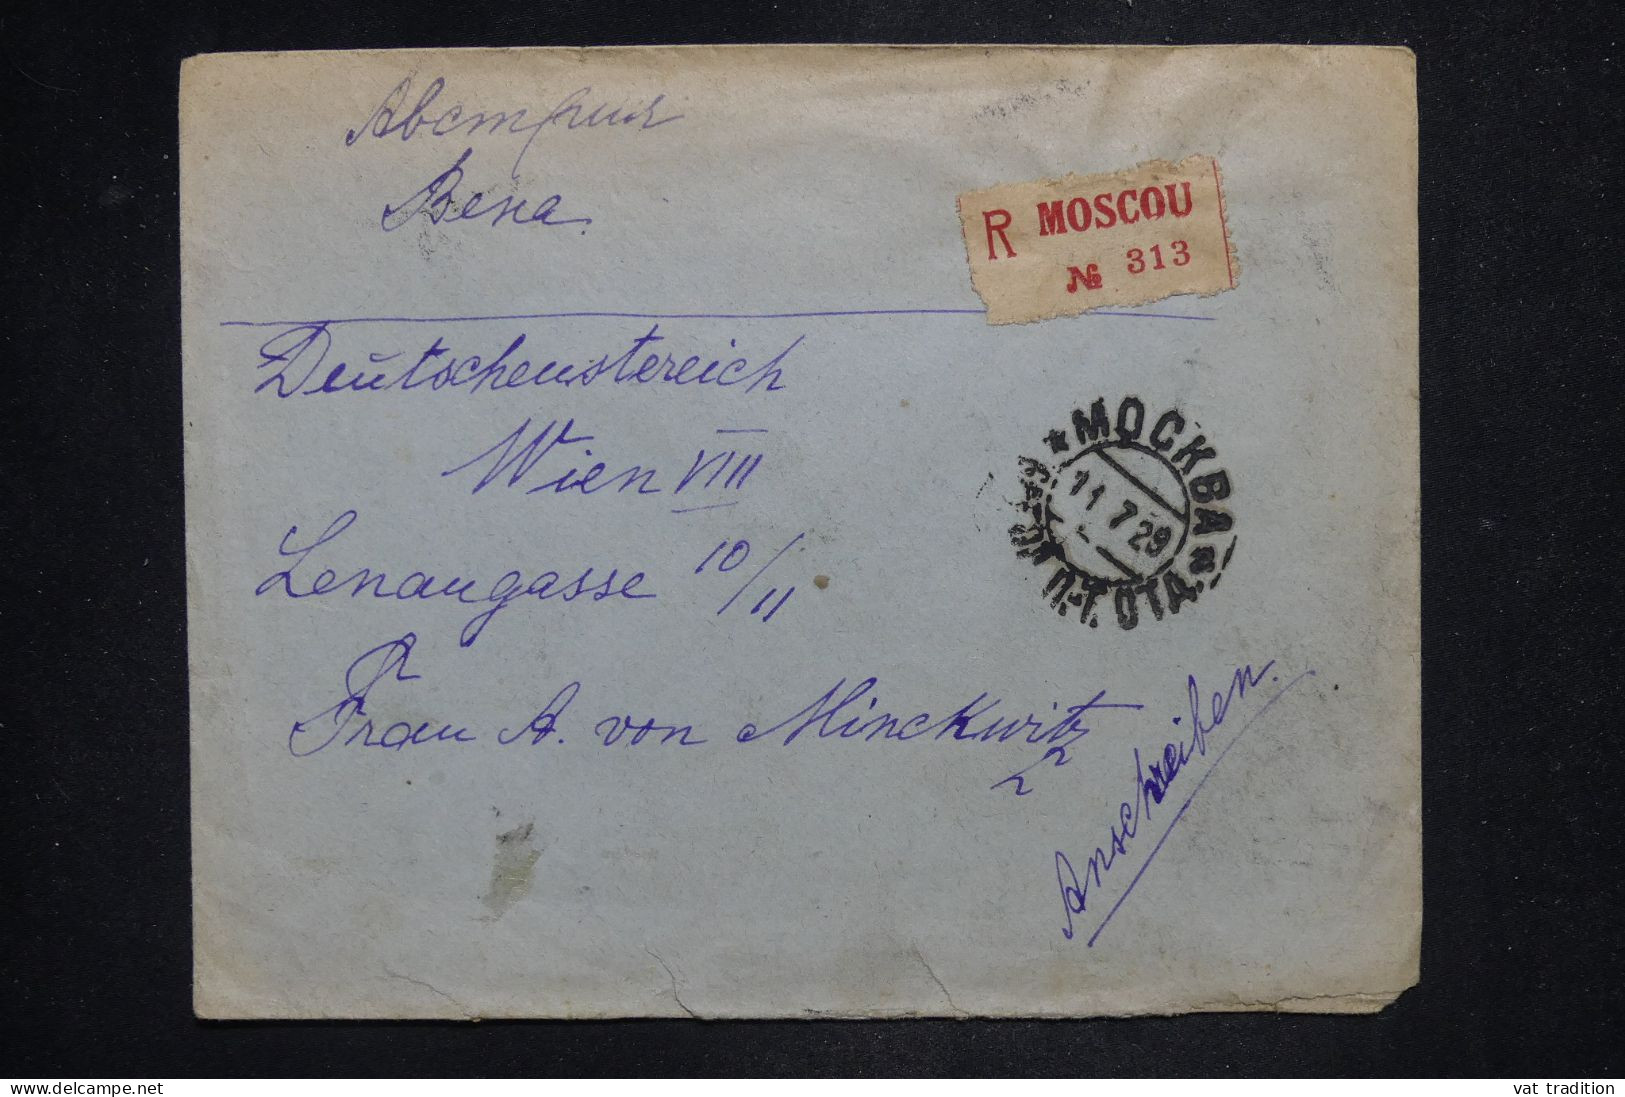 Австрия
Вена.
R MOSCOU
№ 313
Deutschenstereich
Wien VIII
Lenaugasse 10/11
Frau A. von Minckwitz
Anschreiben.
МОСКВА
11 7 29
П.-Т. ОТД.
delcampe.net
vat tradition